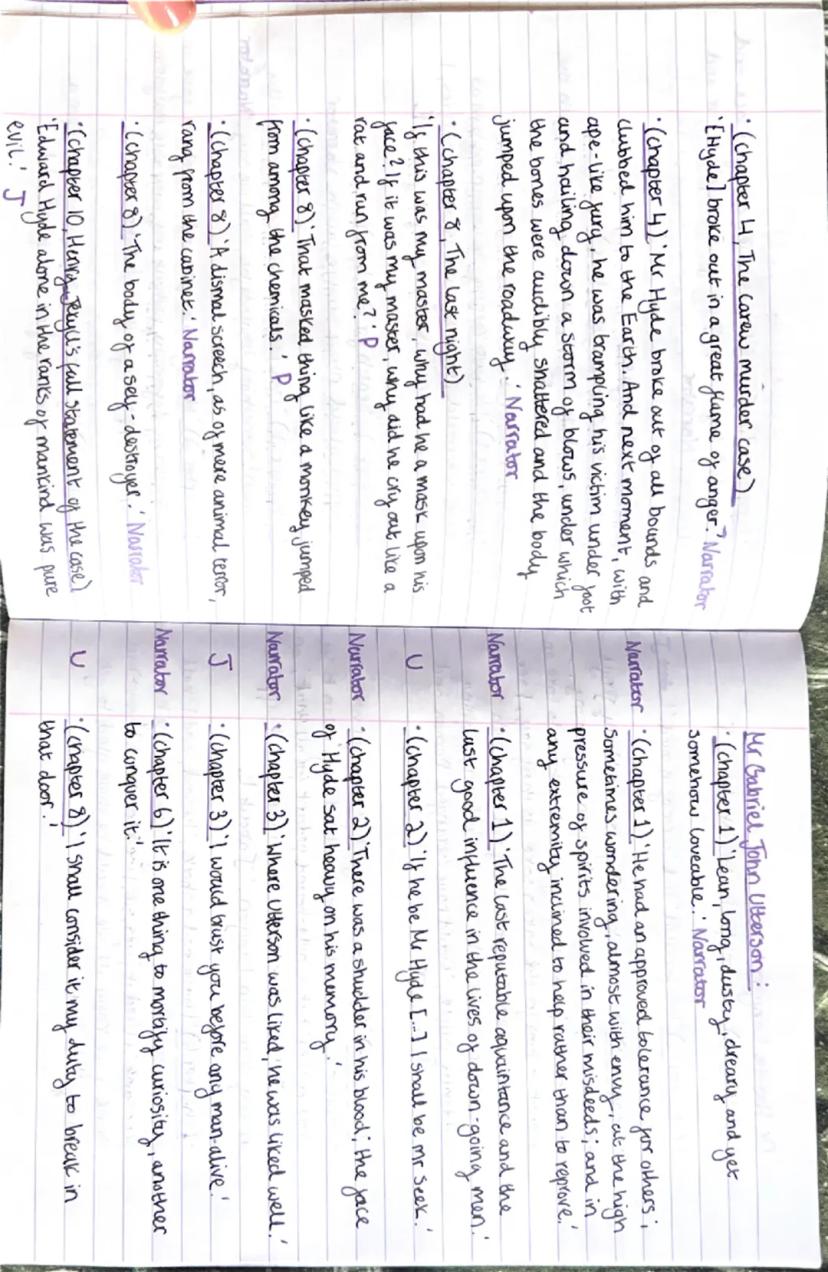 · (chapter 4, The carew murder case)
'[Hyde] broke out in a great flame of anger.' Narrator
· (chapter 4) 'Mr Hyde broke out of all bounds and
clubbed him to the Earth. And next moment, with
ape-like fury, he was trampling his victim under foot
and hailing down a storm of blows, under which
the bones were audibly shattered and the body
jumped upon the roadway.' Narrator
· (chapter 8, The last night)
'If this was my master, why had he a mask upon his
face? If it was my master, why did he cry out like a
rat and run from me?' P
· (chapter 8) 'That masked thing like a monkey jumped
from among the chemicals.' P
· (chapter 8) 'A dismal screech, as of mere animal terror,
rang from the cabinet.' Narrator
· (chapter 8) 'The body of a self-destroyer.' Narrator
· (chapter 10, Henry Jekyll's full statement of the case)
'Edward Hyde alone in the ranks of mankind was pure
evil.' J
Mr Gabriel John Utterson:
· (chapter 1) 'Lean, long, dusty, dreary and yet
somehow loveable.' Narrator
Narrator · (chapter 1) 'He had an approved tolerance for others;
sometimes wondering, almost with envy, at the high
pressure of spirits involved in their misdeeds; and in
any extremity inclined to help rather than to reprove.'
Narrator · (chapter 1) 'The last reputable aquaintance and the
last good influence in the lives of down-going men.'
U · (chapter 2) 'If he be Mr Hyde [...] I shall be mr Seek.'
Narrator · (chapter 2) 'There was a shudder in his blood; the face
of Hyde sat heavy on his memory.'
Narrator · (chapter 3) 'Where Utterson was liked, he was liked well.'
J · (chapter 3) 'I would trust you before any man alive.'
Narrator · (chapter 6) 'It is one thing to mortify curiosity, another
to conquer it.'
U · (chapter 8) 'I shall consider it my duty to break in
that door.'